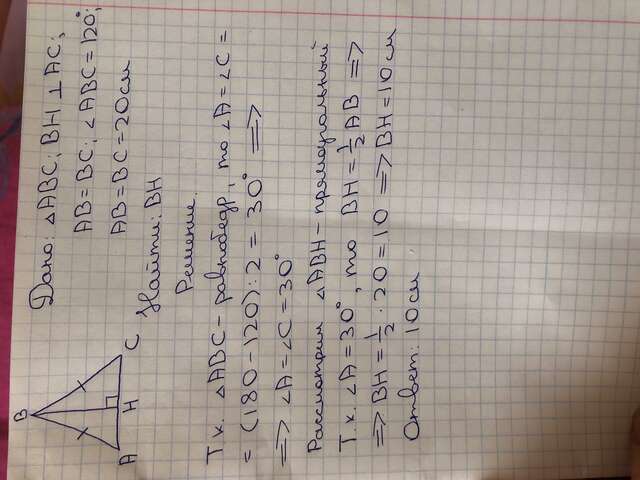 Дано: △ABC; BH ⊥ AC;
AB=BC; ∠ABC=120°;
AB=BC=20см
Найти: BH
B
A
H
C
Решение.
Т.к. △ABC - равнобедр, то ∠A=∠C=
= (180-120):2 = 30° =>
=> ∠A=∠C=30°
Рассмотрим △ABH - прямоугольный
Т.к. ∠A=30°, то BH=1/2 AB =>
=> BH=1/2 · 20=10 => BH=10см
Ответ: 10см